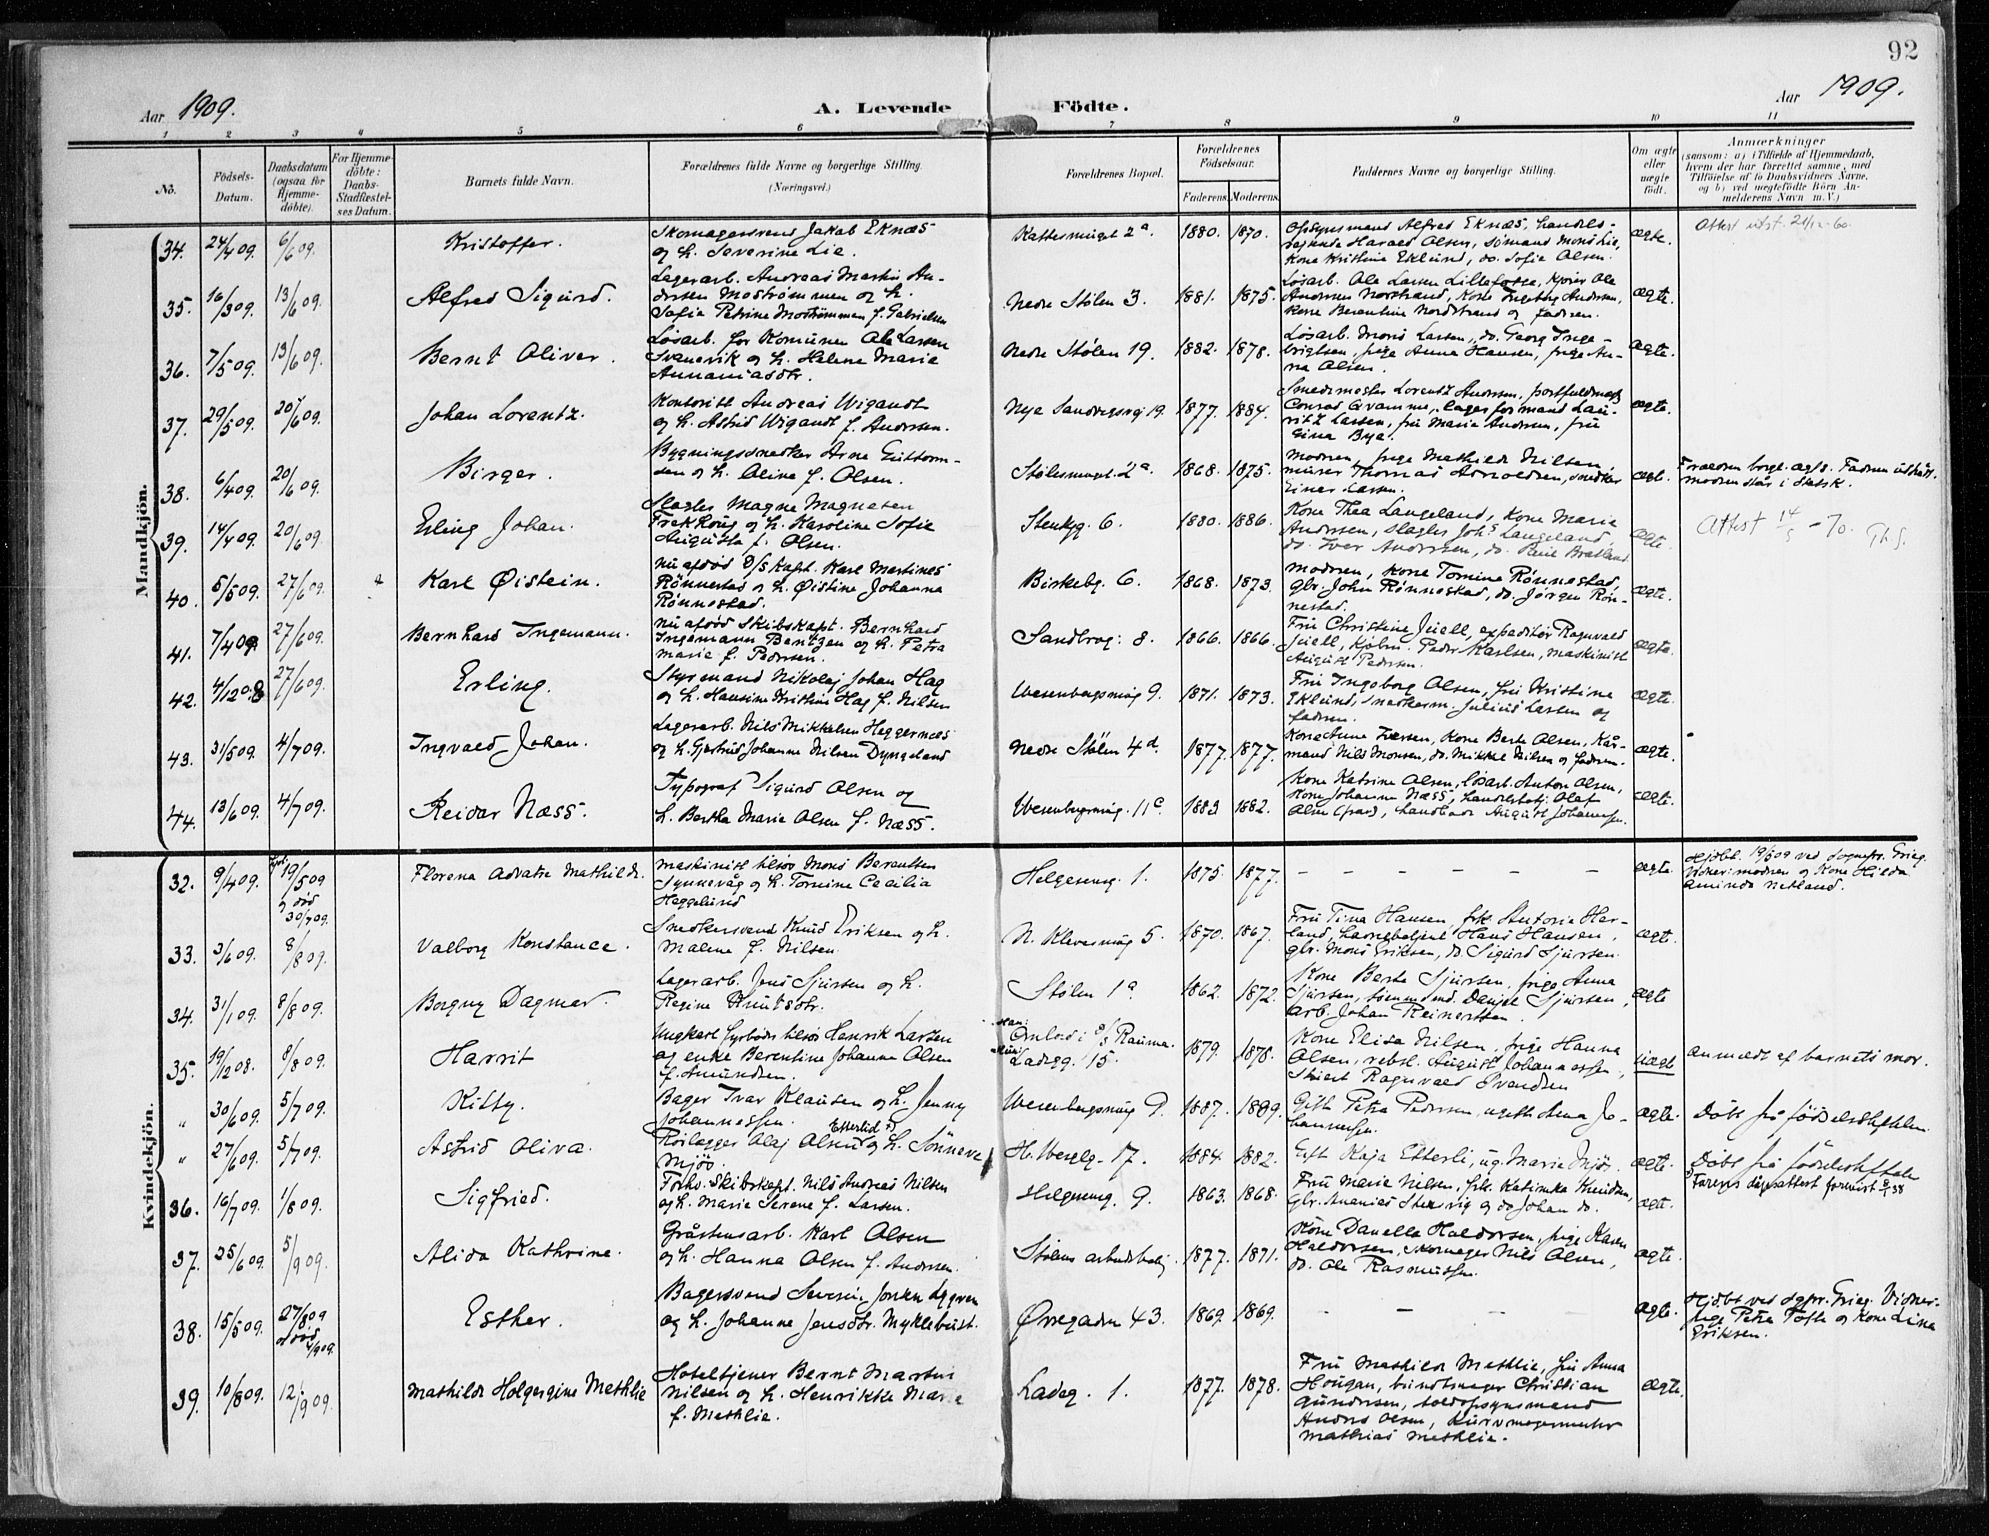 92
Aar 1909. A. Levende Födte. Aar 1909.
1 2 3 4 5 6 7 8 9 10 11
No.
Födsels-
Datum.
Daabsdatum
(ogsaa for
Hjemme-
döbte).
For Hjemme-
döbte:
Daabs-
Stadfæstel-
ses Datum.
Barnets fulde Navn.
Forældrenes fulde Navne og borgerlige Stilling.
(Næringsvei.)
Forældrenes Bopæl.
Forældrenes
Födselsaar.
Faderens Moderens.
Faddernes Navne og borgerlige Stilling.
Om ægte
eller
uægte
født.
Anmærkninger
(saasom: a) i Tilfælde af Hjemmedaab,
hvem der har forrettet samme, med
Tilföielse af to Daabsvidners Navne,
og b) ved uægtefödte Börn An-
melderens Navn m. V.)
Mandkjön.
34. 24/4 09. 6/6 09.
Kristoffer.
Skomagersvend Jakob Eknæs
og h. Severine Lie.
Kattesmuget 2a. 1880. 1870.
Opsynsmand Alfred Eknæs, handels-
rejsende Harald Olsen, sømand Mons Lie,
Kone Kristine Eklund, do. Sofie Olsen.
ægte.
Attest utst. 21/12-60.
35. 16/3 09. 13/6 09.
Alfred Sigurd.
Lagerarb. Andreas Martin An-
dersen Mostrømmen og h.
Sofie Petrine Mostrømmen f. Gabrielsen
Nedre Stølen 3. 1881. 1875.
Løsarb. Ole Larsen Lillefosse, Kjører Ole
Andersen Nordstrand, Kone Ingeborg Andersen,
Kone Berentine Nordstrand og faderen.
ægte.
36. 7/5 09. 13/6 09.
Bernt Oliver.
Løsarb. for Komunen Ole Larsen
Svanevik og h. Helene Marie
Annaniasdtr.
Nedre Stølen 19. 1882. 1878.
Løsarb. Mons Larsen, do. Georg Inge-
brigtsen, pige Anna Hansen, pige An-
na Olsen.
ægte.
37. 29/5 09. 20/6 09.
Johan Lorentz.
Kontorist Andreas Wigandt
og h. Astrid Wigandt f. Andersen.
Nye Sandvigsvej 19. 1877. 1884.
Smedemester Lorentz Andersen, postfuldmægt
Conrad Gramme, lagerformand Lau-
ritz Larsen, fru Marie Andersen, fru
Gina Bye.
ægte.
38. 6/4 09. 20/6 09.
Birger.
Bygningssnedker Arne Guttorm-
sen og h. Oline f. Olsen.
Stølesmuget 2a. 1868. 1875.
Moderen, pige Mathilde Nilsen,
murer Thomas Arnoldsen, snedker
Einar Larsen.
ægte.
Forældren borgl. ægtv. Faderen utmeldt.
moderen står i Statsk.
39. 14/4 09. 20/6 09.
Erling Johan.
Slagter Magne Magnesen
Frekhaug og h. Karoline Sofie
Augusta f. Olsen.
Stenkjg. 6. 1880. 1886.
Kone Thea Langeland, Kone Marie
Andersen, slagter Johs Langeland,
do. Iver Andersen, do. Paul Bratland
ægte.
Attest 14/5 - 70. Th.G.
40. 5/5 09. 27/6 09.
Karl Øistein.
Nu afdød D/S Kapt. Karl Martines
Rønnestad og h. Øistine Johanna
Rønnestad.
Birkebg. 6. 1868. 1873.
Moderen, Kone Tomine Rønnestad,
glr. John Rønnestad, do. Jørgen Røn-
nestad.
ægte.
41. 7/4 09. 27/6 09.
Bernhard Ingemann.
Nu afdød Skibskapt. Bernhard
Ingemann Bentzen og h. Petra
Marie f. Pedersen.
Sandbrog. 8. 1866. 1866.
Fru Christine Juell, expeditør Ragnvald
Juell, Kjøbm. Peder Karlsen, maskinist
August Pedersen.
ægte.
42. 4/12 08 27/6 09.
Erling.
Styrmand Nikolaj Johan Hag
og h. Hansine Kristine Hag f. Nilsen
Wesenbergsmug 9. 1871. 1873.
Fru Ingeborg Olsen, fru Kristine
Eklund, snedkerm. Julius Larsen og
faderen.
ægte.
43. 31/5 09. 4/7 09.
Ingvald Johan.
Lagerarb. Nils Mikkelsen Heggernæs
og h. Gjertrud Johanne Nilsen Dyngeland
Nedre Stølen 4d. 1877. 1877.
Kone Anne Iversen, Kone Berte Olsen, Kår-
mand Nils Monsen, do. Mikkel Nilsen og faderen.
ægte.
44. 13/6 09. 4/7 09.
Reidar Næss.
Typograf Sigurd Olsen og
h. Bertha Marie Olsen f. Næss.
Wesenbergsmug. 11c. 1883 1882.
Kone Katrine Olsen, løsarb. Anton Olsen,
Kone Johanne Næss, handelsbetj. Olaf
Olsen, August Johannessen.
ægte.
Kvindekjön.
32. 9/4 09. 19/5 09
og død
30/7 09.
Florena Advate Mathilde.
Maskinist Mons Berentsen
Synnevåg og h. Tomine Cecilia
Heggelund
Helgesmug. 1. 1875 1877.
– – – – – –
ægte.
Hjdbt. 19/5 09 ved sognepr. Grieg.
Vidner: moderen og Kone Hilda
Aminda Netland.
33. 3/6 09. 8/8 09.
Valborg Konstance.
Snedkersvend Knud Eriksen og h.
Malene f. Nilsen.
N. Klevesmug 5. 1870. 1867.
Fru Tina Hansen, frk. Antonie Her-
land, Hans Hansen,
glr. Mons Eriksen, do. Sigurd Sjursen.
ægte.
34. 31/1 09. 8/8 09.
Borgny Dagmar.
Lagerarb. Jens Sjursen og h.
Regine Knutsdtr.
Stølen 1a. 1862. 1872.
Kone Berte Sjursen, pige Anna
Sjursen, Daniel Sjursen,
arb. Johan Reinertsen.
ægte
35. 19/12 08. 8/8 09.
Harrit
Ungkarl fyrbøder Henrik Larsen
og enke Berentine Johanne Olsen
f. Amundsen.
Han: Ombord i D/S Rauma.
Hun: Ladegg. 15. 1879. 1878.
Kone Elida Nilsen, pige Hanna
Olsen, rebsl. August Johannessen,
Ragnvald Svendsen
uægte
Anmeldt af barnets mor.
" 30/6 09. 5/7 09.
Kitty.
Bager Ivar Klausen og h. Jenny
Johannessen.
Wesenbergsmug 9. 1887. 1889.
Gift Petra Pedersen, ugift Anna Jo-
hannessen.
ægte.
Døbt på fødselsstiftelsen.
" 27/6 09. 5/7 09.
Astrid Oliva.
Rørlægger Olaj Olsen og h. Sønneve
Mjøs.
H. Wergelg. 17. 1884. 1882.
Gift Kaja Etterli, ug. Marie Mjøs.
ægte.
Døbt på fødselsstiftelsen
36. 16/7 09. 1/8 09.
Sigfried.
Forhv. Skibskapt. Nils Andreas Nilsen
og h. Marie Serene f. Larsen.
Helgesmug. 9. 1863. 1868.
Fru Marie Nilsen, frk. Katinka Knudsen,
Glr. Ananias Stensvig og do Johan do.
ægte.
37. 25/6 09. 5/9 09.
Alida Kathrine.
Gråstensarb. Karl Olsen
og h. Hanna Olsen f. Andersen.
Stølens arbeiderbolig. 1877. 1871.
Kone Danelle Haldorsen, pige Karen
Haldorsen, Skomager Nils Olsen,
do. Ole Rasmussen.
ægte.
38. 15/5 09. 27/8 09
død
Esther.
Bagersvend Severin Jonsen Lygren
og h. Johanne Jensdtr. Myklebust.
Øvregaden 43. 1869. 1869.
– – – –
ægte.
Hjdbt ved sgpr. Grieg. Vidner:
pige Petra Tofte og Kone Lina
Eriksen.
39. 10/8 09. 12/9 09.
Mathilde Holgergine Methlie
Hoteltjener Bernt Martin
Nilsen og h. Henrikke Marie
f. Methlie.
Ladeg. 1. 1877. 1878.
Fru Mathilde Methlie, fru Anna
Hougan, buntmager Christian
Gundersen, toldopsynsmand
Anders Olsen,
Mathias Methlie.
ægte.